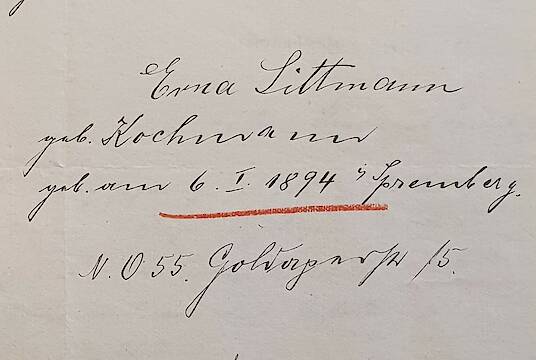 Erna Littmann
geb. Kochmann
geb. am 6. I. 1894 i/ Spremberg.
N. O 55. Goldaperstr 15.